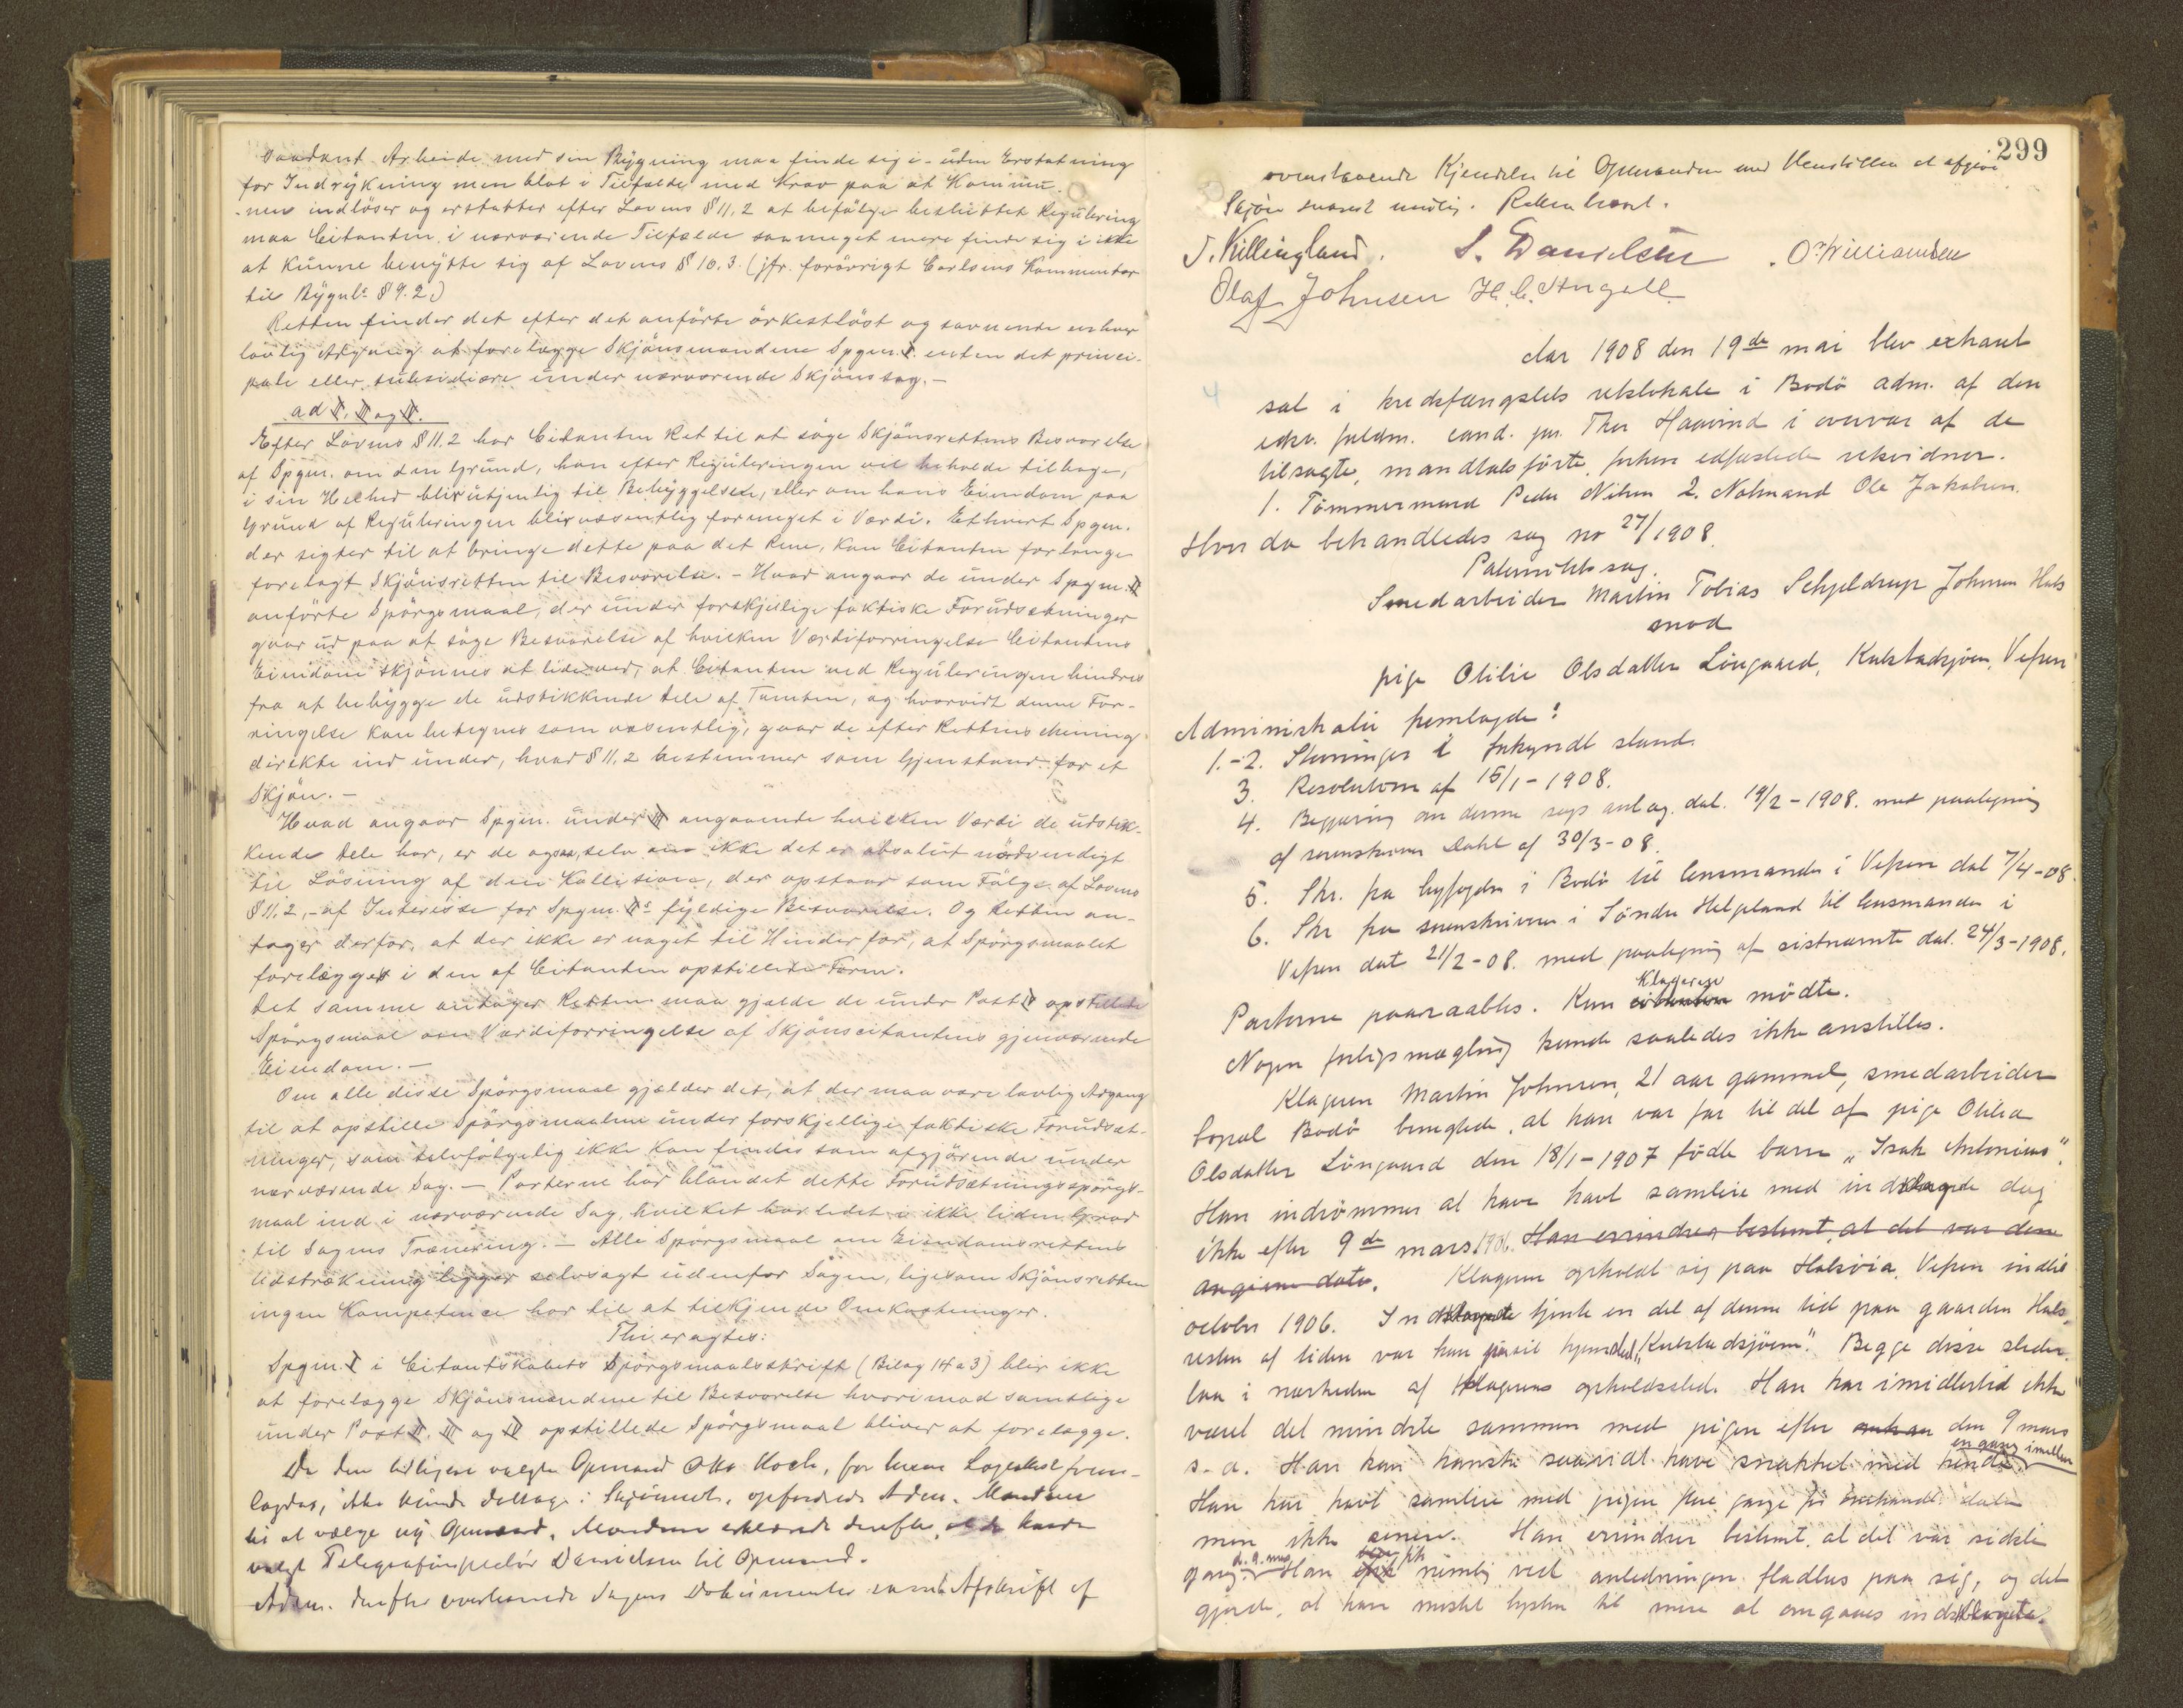 saadant Arbeide med sin Bygning maa finde sig i uden Erstatning
for Indrykning men blot i Tilfælde med Krav paa at Kommu-
nen indløser og erstatter efter Lovens § 11,2 at befølge besluttet Regulering
maa Citanten i nærværende Tilfælde saameget mere finde sig i ikke
at kunne benytte sig af Lovens § 10.3. (jfr. forøvrigt Carlsens Kommentar
til Bygnl. § 9.2.)
Retten finder det efter det anførte ørkesløst og savnende enhver
lovlig Adgang at forelægge Skjønsmændene Spgm. I. enten det princi-
pale eller subsidiære under nærværende Skjønssag. -
ad II, III og IV.
Efter Lovens § 11.2 har Citanten Ret til at søge Skjønsrettens Besvarelse
af Spgm. om den Grund, han efter Reguleringen vil beholde tilbage,
i sin Helhed blir utjenlig til Bebyggelse, eller om hans Eiendom paa
Grund af Reguleringen blir væsentlig forringet i Værdi. Ethvert Spgm.
der sigter til at bringe dette paa det Rene, kan Citanten forlange
forelagt Skjønsretten til Besvarelse. - Hvad angaar de under Spgm. II
anførte Spørgsmaal, der under forskjellige faktiske Forudsætninger
gaar ud paa at søge Besvarelse af hvilken Værdiforringelse Citantens
Eiendom skjønnes at lide ved, at Citanten ved Reguleringen hindres
fra at bebygge de udstikkende Dele af Tomten, og hvorvidt denne For-
ringelse kan betegnes som væsentlig, gaar de efter Rettens Mening
direkte ind under, hvad § 11.2 bestemmer som Gjenstand for et
Skjøn. -
Hvad angaar Spgm. under III angaaende hvilken Værdi de udstik-
kende Dele har, er de ogsaa, selv om ikke det er absolut nødvendigt
til Løsning af den Kollision, der opstaar som Følge af Lovens
§ 11.2, - af Interesse for Spgm. IIs fyldige Besvarelse. Og Retten an-
tager derfor, at der ikke er noget til Hinder for, at Spørgsmaalet
forelægges i den af Citanten opstillede Form.
Det samme antager Retten maa gjælde de under Post IV opstillede
Spørgsmaal om Værdiforringelse af Skjønscitantens gjenværende
Eiendom. -
Om alle disse Spørgsmaal gjælder det, at der maa være lovlig Adgang
til at opstille Spørgsmaalene under forskjellige faktiske Forudsæt-
ninger, som selvfølgelig ikke kan findes som afgjørende under
nærværende Sag. - Parterne har blandet dette Forudsætningsspørgs-
maal ind i nærværende Sag, hvilket har ledet i ikke liden Grad
til Sagens Trænering. - Alle Spørgsmaal om Eiendomsrettens
Udstrækning ligger selvsagt udenfor Sagen, ligesom Skjønsretten
ingen Kompetence har til at tilkjende Omkostninger.
Thi eragtes:
Spgm. I i Citantskabets Spørgsmaalsskrift (Bilag 14 a 3) blir ikke
at forelægge Skjønsmændene til Besvarelse hvorimod samtlige
under Post II, III og IV opstillede Spørgsmaal bliver at forelægge.
Da den tidligere valgte Opmand Otto Koch, for hvem Lægeattest frem-
lagdes, ikke kunde deltage i Skjønnet, opfordrede Adm. Mændene
til at vælge ny Opmand. Mændene erklærede derefter, at de havde
valgt Telegrafinspektør Danielsen til Opmand.
Adm. derefter overleverede Sagens Dokumenter samt Afskrift af
299
ovenstaaende Kjendelse til Opmanden med Henstillen at afgive
Skjøn snarest mulig. Retten hævet.
J. Killingland. S. Danielsen. O. Williamsen
Olaf Johnsen H. C. Angell
Aar 1908 den 19de mai blev extraret
4
sat i kredsfængslets retslokale i Bodø adm. af den
edsv. fuldm. cand. jur. Thor Haavind i overvær af de
tilsagte, mandtalsførte, forhen edfæstede retsvidner.
1. Tømmermand Peder Nilsen 2. Notmand Ole Jakobsen.
Hvor da behandledes sag no 27/1908.
Paternitetssag.
Smedarbeider Martin Tobias Schjeldrup Johnsen Hals
mod
pige Otilie Olsdatter Lingaard, Kulstadsjøen, Vefsen
Administrator fremlagde:
1.-2. Stevninger i forkyndt stand.
3. Resolution af 15/1-1908.
4. Begjæring om denne sags anlæg. dat. 19/2-1908. med paategning
af sorenskriver Dahl af 30/3-08.
5. Skr. fra byfogden i Bodø til lensmanden i Vefsen dat 7/4-08.
6. Skr fra sorenskriveren i Søndre Helgeland til lensmanden i
Vefsen dat 21/2-08. med paategning af sistnævnte dat. 24/3-1908.
Parterne paaraabtes. Kun Klageren mødte.
Nogen forligsmægling kunde saaledes ikke anstilles.
Klageren Martin Johnsen, 21 aar gammel, smedarbeider
bopæl Bodø benegtede, at han var far til det af pige Otilia
Olsdatter Lingaard den 18/1-1907 fødte barn „Isak Antonius".
Han indrømmer at have havt samleie med indklagede dog
ikke efter 9de mars 1906. Han erindrer bestemt, at det var den
angivne dato. Klageren opholdt sig paa Halsøia, Vefsen indtil
october 1906. Indklagede tjente en del af denne tid paa gaarden Hals,
resten af tiden var hun paa sit hjemsted „Kulstadsjøen". Begge disse steder
laa i nærheden af klagerens opholdssted. Han har imidlertid ikke
været det mindste sammen med pigen efter den 9 mars
s.a. Han kan kanske saavidt have snakket med hende en gang imellem
Han har havt samleie med pigen flere gange før dato
men ikke senere. Han erindrer bestemt, at det var sidste
gang d. 9. mars Han fik nemlig ved anledningen fladlus paa sig, og det
gjorde, at han mistet lysten til mere at omgaaes indklagede.